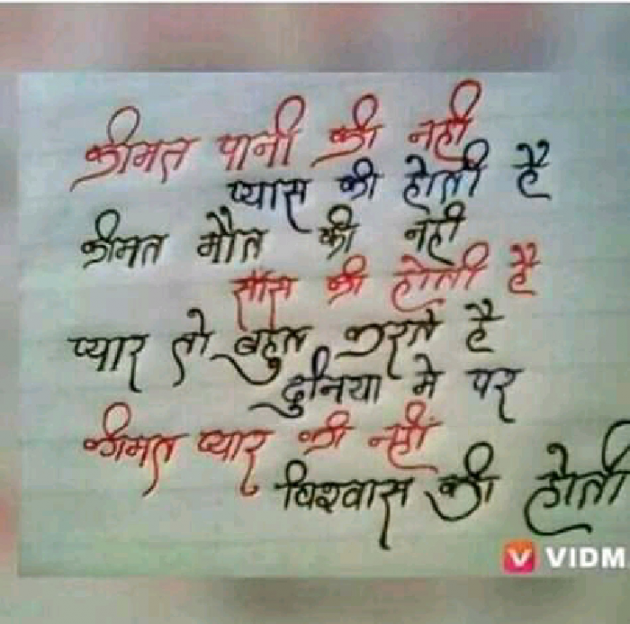 कीमत पानी की नही
प्यास की होती है
कीमत मौत की नही
सांस की होती है
प्यार तो बहुत करते है
दुनिया मे पर
कीमत प्यार की नहीं
विश्वास की होती
VIDM